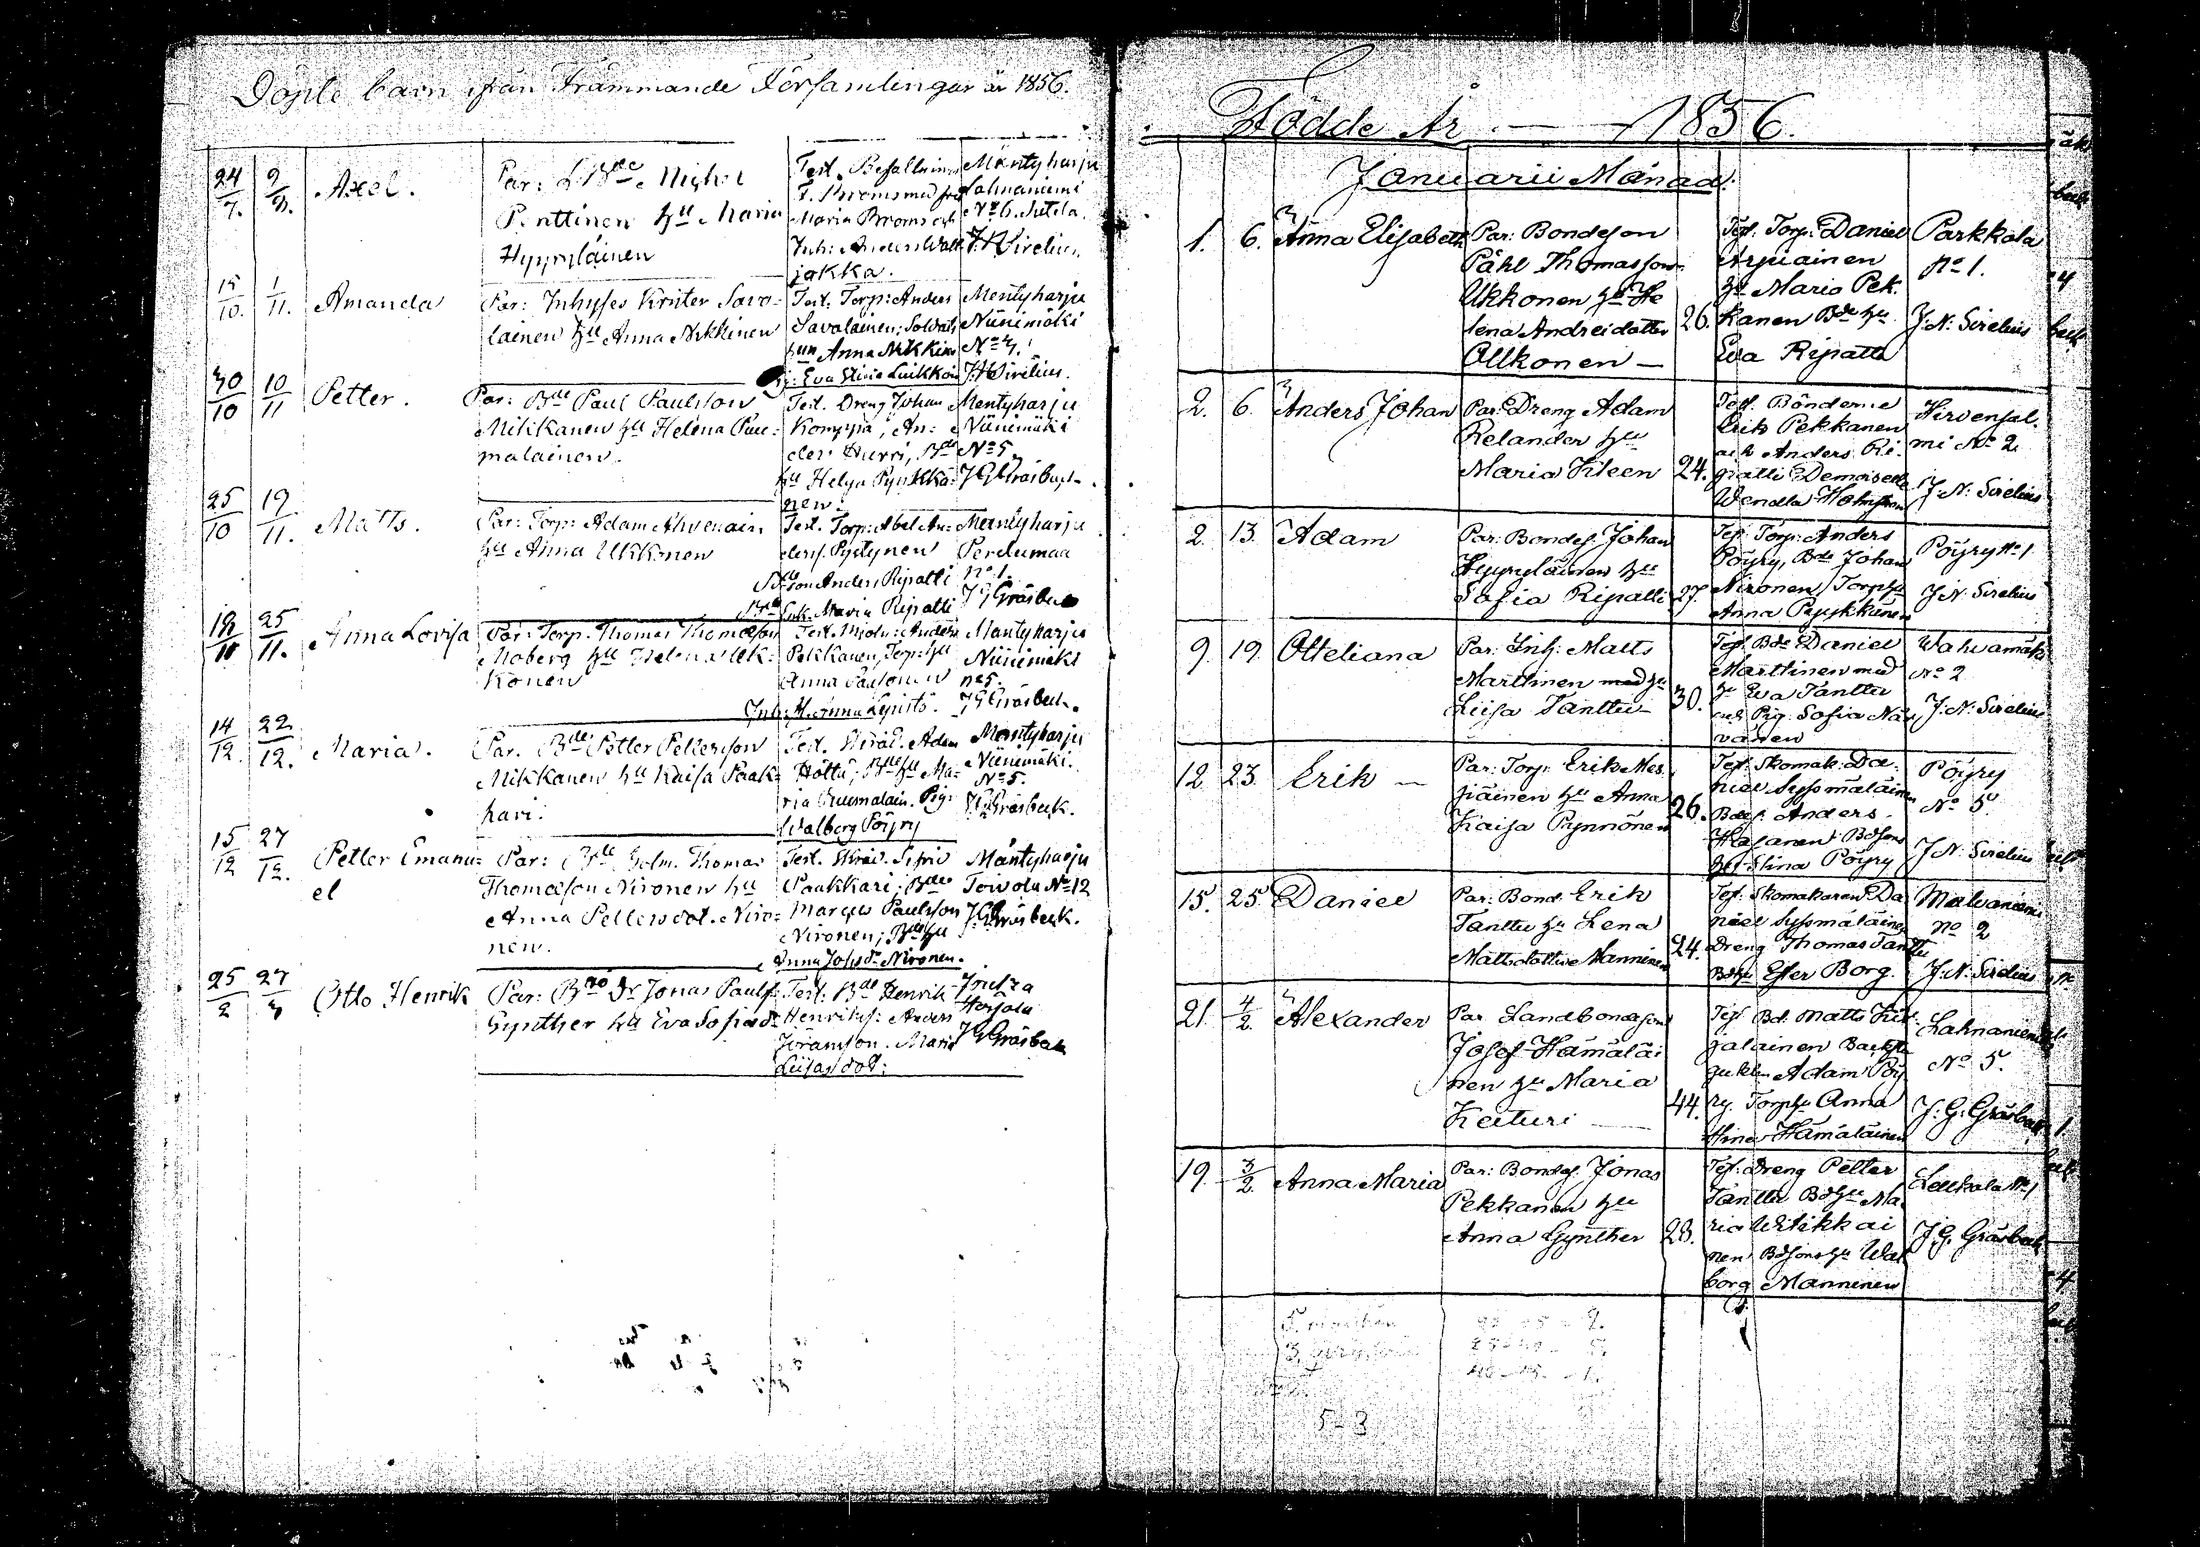 Döpte barn ifrån Främmande Församlingar år 1856.
24/7. 9/9. Axel. Par: L.Bde Michel
Penttinen hu Maria
Hyyryläinen
Test. Befallnings
F. Broms med fru
Maria Broms och
Inh: Anders Walk
jakka.
Mäntyharju
Lahnaniemi
No 6. Sutela.
J.N. Sirelius.
15/10. 1/11. Amanda Par: Inhyses Krister Savo-
lainen hu Anna Nikkinen
Test. Torp: Anders
Savolainen; Soldats
hun Anna Nikkinen
Pig: Eva Stina Luikkoin
Mentyharju
Niinimäki
No 4.
J.N. Sirelius.
30/10 10/11 Petter. Par: Bde Paul Paulsson
Mikkanen hu Helena Puu-
malainen.
Test. Dreng Johan
Komppa, An-
ders Hurri, Bde
hu Helga Pyykkö-
nen.
Mentyharju
Niinimäki
No 5.
J G Gråsbeck.
25/10 19/11. Matts. Par: Torp: Adam Ahvenain.
hu Anna Ukkonen
Test. Torp: Abel An-
ders. Pystynen
Bdeson Anders Ripatti
Enk. Maria Ripatti
Mäntyharju
Pertumaa
no 1.
J G Gråsbeck
18/10 25/11. Anna Lovisa Par: Torp. Thomas Thomasson
Moberg hu Helena Uk-
konen
Test. Anders
Pekkanen, Torp: hu
Anna Paasonen
Mäntyharju
Niinimäki
no 5.
J G Gråsbeck.
14/12. 22/12. Maria. Par. Bde Petter Pettersson
Mikkanen hu Kaisa Paak-
kari.
Test. Skräd. Adam
Höltta; Bde hu Ma-
ria Puumalain. Pig:
Walborg Pöyry
Mentyharju
Niinimäki.
No 5.
J G Gråsbeck.
15/12 27/12. Petter Emanu-
el
Par: Bde Thomas
Thomasson Nironen hu
Anna Pettersdot. Niro-
nen.
Test. Skräd.
Paakkari; Bde
Marcus Paulsson
Nironen; Bde hu
Anna Johsdr Nironen.
Mäntyharju
Toivola No 12
J G Gråsbeck.
25/2 27/3 Otto Henrik Par: Bro Dr Jonas Paulss.
Gynther hu Eva Sofia
Test: Bde Henrik
Henrikss: Anders
Jöransson. Maria
Liisas dot:
Joutza
J G Gråsbeck
Födde År — 1856.
Januarii Månad.
1. 6. Anna Elisabeth Par: Bondeson
Påhl Thomasson
Ukkonen hu He
lena Andreidotter 26.
Ollkonen —
Test. Torp: Daniel
Arjuainen
hu Maria Pek
kanen Bde hu
Eva Ripatti
Parkkola
No 1.
J. N. Sirelius
2. 6. Anders Johan Par: Dreng Adam
Relander hu
Maria Kileen 24.
Test. Bönderne
Erik Pekkanen
och Anders Ri-
patti Demoiselle
Wendla Holmström
Hirvensal-
mi No 2.
J. N. Sirelius
2. 13. Adam Par: Bondes. Johan
Hyyryläinen hu
Sofia Ripatti 27.
Test. Torp: Anders
Pöyry, Bde Johan
Nironen, Torp hu
Anna Pyykkönen
Pöyry No 1
J. N. Sirelius
9. 19. Otteliana Par: Inh: Matts
Marttinen med hu
Luisa Tanttu 30.
Test. Bde Daniel
Marttinen med
hu Eva Tanttu
och Pig. Sofia När
vänen
Wahvamäki
No 2
J. N. Sirelius
12. 23. Erik — Par: Torp: Erik Mes
piäinen hu Anna
Kaisa Pynnönen 26.
Test. Skomak. Da-
niel Syssmäläinen
Bdes. Anders
Halanen Bdsons
hu Stina Pöyry
Pöyry
No 5.
J. N. Sirelius
15. 25. Daniel Par: Bond. Erik
Tanttu hu Lena
Mattsdotter Manninen 24.
Test. Skomakaren Da
niel Syssmäläinen
Dreng Thomas Tanttu
Bdhu Ester Borg.
Malvaniemi
No 2
J. N. Sirelius
21. 4/2. Alexander Par. Landbondeson
Josef Hämäläi
nen hu Maria
Keituri 44.
Test Bd. Matts
Adam Pöy
ry. Torphu Anna
Stina Hämäläinen
Lahnaniemi
No 5.
J. G. Gråsbeck
19. 3/2. Anna Maria Par: Bondes. Jonas
Pekkanen hu
Anna Gynther 28.
Test. Dreng Petter
Tanttu Bdhu Ma
ria Utikkai
nen Bdsons hu Wal
borg Manninen
Leukkola No 1
J. G. Gråsbeck
5-3